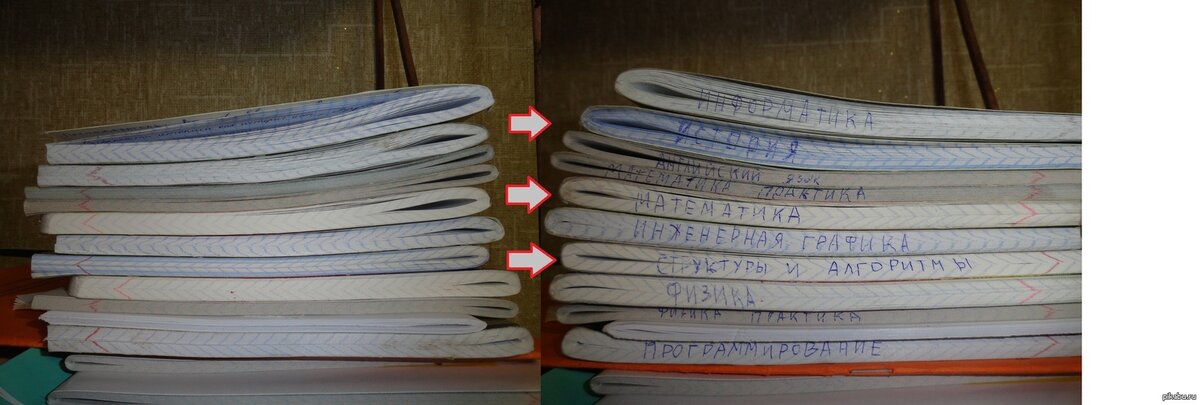 ИНФОРМАТИКА
ИСТОРИЯ
АНГЛИЙСКИЙ ЯЗЫК
МАТЕМАТИКА ПРАКТИКА
МАТЕМАТИКА
ИНЖЕНЕРНАЯ ГРАФИКА
СТРУКТУРЫ И АЛГОРИТМЫ
ФИЗИКА
ФИЗИКА ПРАКТИКА
ПРОГРАММИРОВАНИЕ
pikabu.ru